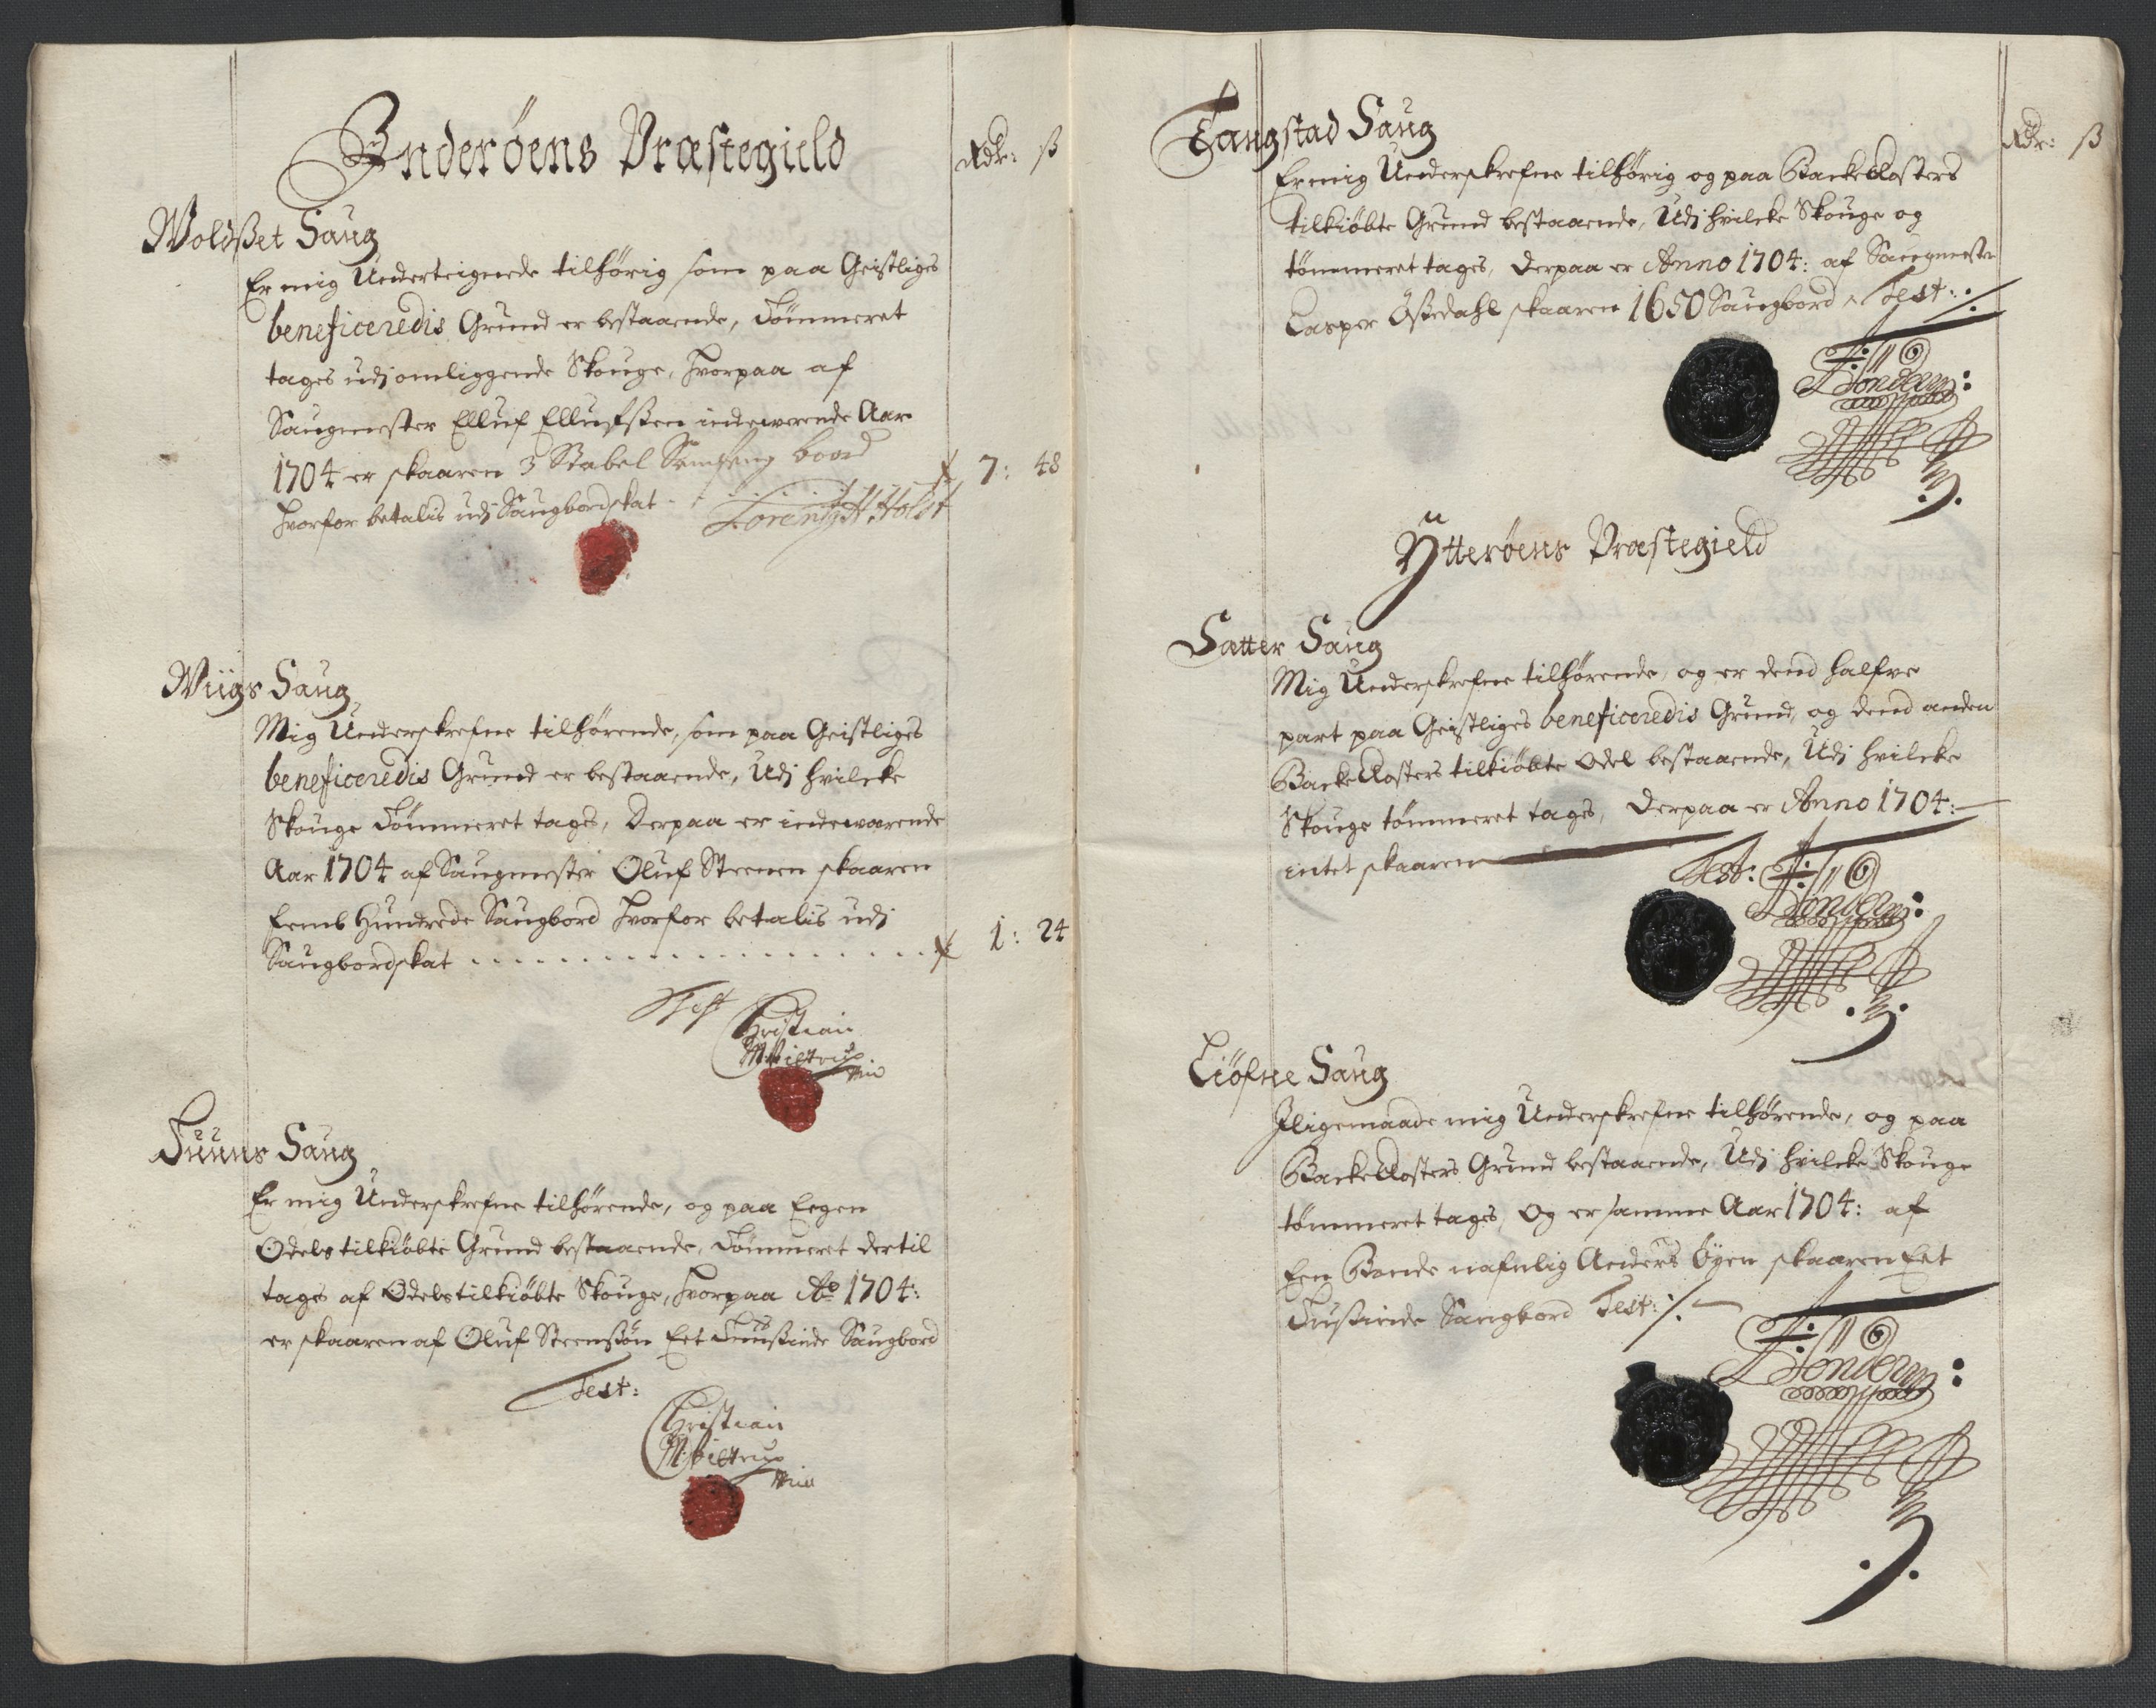 Inderöens Præstegield
Rdr: ß
Woldßet Saug
Er mig Underteignede tilhörig som paa Geistliges
beneficeredis Grund er bestaaende, Tömmeret
tages udj omliggende Skouge, hvorpaa af
Saugmester Elluf Ellufsßen indewerende Aar
1704 er skaaren 3 Stabel boord
hvorfor betalis udj Saugbordskat - 7: 48
Lorentz H: Holst
Wiigs Saug
Mig Underskrefne tilhörende, som paa Geistliges
beneficeredis Grund er bestaaende, Udj hvilcke
Skouge Tömmeret tages, Derpaa er indewærende
Aar 1704 af Saugmester Oluf Steenen skaaren
femb Hundrede Saugbord hvorfor betalis udj
Saugbordskat . . . . . . . . . . . . . . . . 1: 24
Test
Christian
Mpp
Suuns Saug
Er mig Underskrefne tilhörende, og paa Eegen
Odels tilkiöbte Grund bestaaende, Tömmeret dertil
tages af Odels tilkiöbte Skouge, hvorpaa Ao 1704:
er skaaren af Oluf Steensßön Eet Tuußinde Saugbord
Test:
Christian
Mpp
Tangstad Saug
Rdr: ß
Er mig Underskrefne tilhörig og paa Backe Closters
tilkiöbte Grund bestaaende, Udj hvilcke Skouge og
tömmeret tages, Derpaa er Anno 1704: af Saugmester
Casper Ößedahl skaaren 1650 Saugbord, Test:
Hönden:
Ytteröens Præstegield
Sætter Saug
Mig Underskrefne tilhörende, og er dend halfve
part paa Geistliges beneficeredis Grund, og dend anden
Backe Closters tilkiöbte Odel bestaaende, Udj hvilcke
Skouge tömmeret tages, Derpaa er Anno 1704:
intet skaaren
Test:
Hönden:
Liöfne Saug
Iligemaade mig Underskrefne tilhörende, og paa
Backe Closters Grund bestaaende, Udj hvilcke Skouge
tömmeret tages, Og er samme Aar 1704: af
Een Bonde nafnlig Anders Öyen skaaren Eet
Tußinde Saugbord Test:
Hönden: